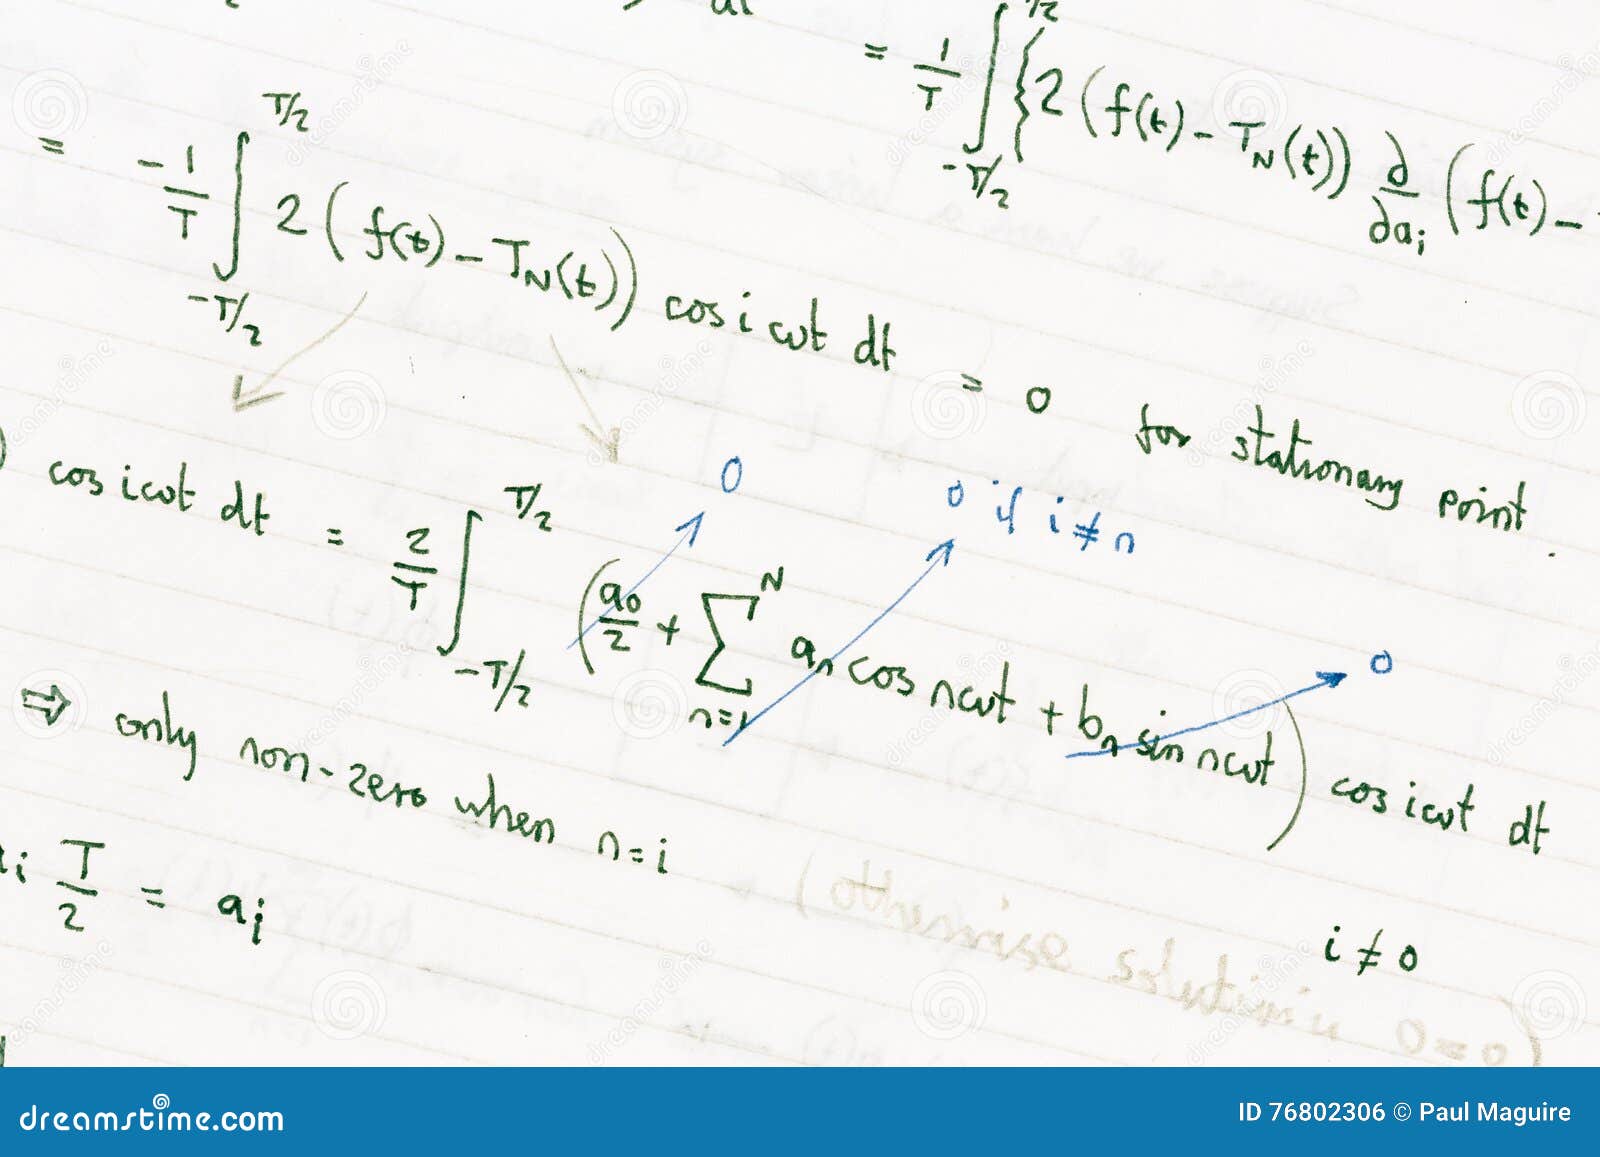 = 1/T ∫_{-T/2}^{T/2} { 2 ( f(t) - T_N(t) ) ∂/∂a_i ( f(t) -
= -1/T ∫_{-T/2}^{T/2} 2 ( f(t) - T_N(t) ) cos iωt dt = 0 for stationary point.
0
0 if i ≠ n
) cos iωt dt = 2/T ∫_{-T/2}^{T/2} ( a_0/2 + ∑_{n=1}^{N} a_n cos nωt + b_n sin nωt ) cos iωt dt
0
⇒ only non-zero when n = i
i T/2 = a_i
i ≠ 0
dreamstime.com
ID 76802306 © Paul Maguire